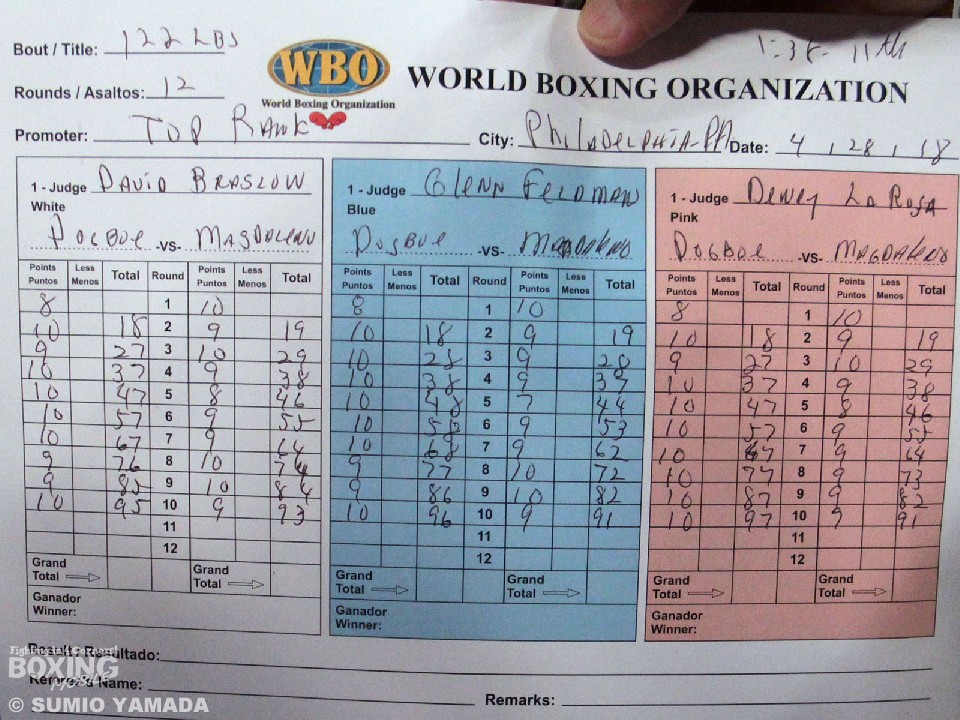 Bout / Title: 122 LBS
1:38 11th
Rounds / Asaltos: 12
WBO
World Boxing Organization
WORLD BOXING ORGANIZATION
Promoter: TOP RANK
City: PHILADELPHIA-PA
Date: 4, 28, 18
1 - Judge DAVID BRASLOW
White
DOGBOE -VS- MAGDALENO
Points Puntos Less Menos Total Round Points Puntos Less Menos Total
8 1 10
10 18 2 9 19
9 27 3 10 29
10 37 4 9 38
10 47 5 8 46
10 57 6 9 55
10 67 7 9 64
9 76 8 10 74
9 85 9 10 84
10 95 10 9 93
11
12
Grand Total Grand Total
Ganador
Winner:
1 - Judge GLENN FELDMAN
Blue
DOGBOE -VS- MAGDALENO
Points Puntos Less Menos Total Round Points Puntos Less Menos Total
8 1 10
10 18 2 9 19
10 28 3 9 28
10 38 4 9 37
10 48 5 7 44
10 58 6 9 53
10 68 7 9 62
9 77 8 10 72
9 86 9 10 82
10 96 10 9 91
11
12
Grand Total Grand Total
Ganador
Winner:
1 - Judge DEWEY LA ROSA
Pink
DOGBOE -VS- MAGDALENO
Points Puntos Less Menos Total Round Points Puntos Less Menos Total
8 1 10
10 18 2 9 19
9 27 3 10 29
10 37 4 9 38
10 47 5 8 46
10 57 6 9 55
10 67 7 9 64
10 77 8 9 73
10 87 9 9 82
10 97 10 9 91
11
12
Grand Total Grand Total
Ganador
Winner:
Result / Resultado:
Referee's Name:
Remarks:
BOXING
© SUMIO YAMADA